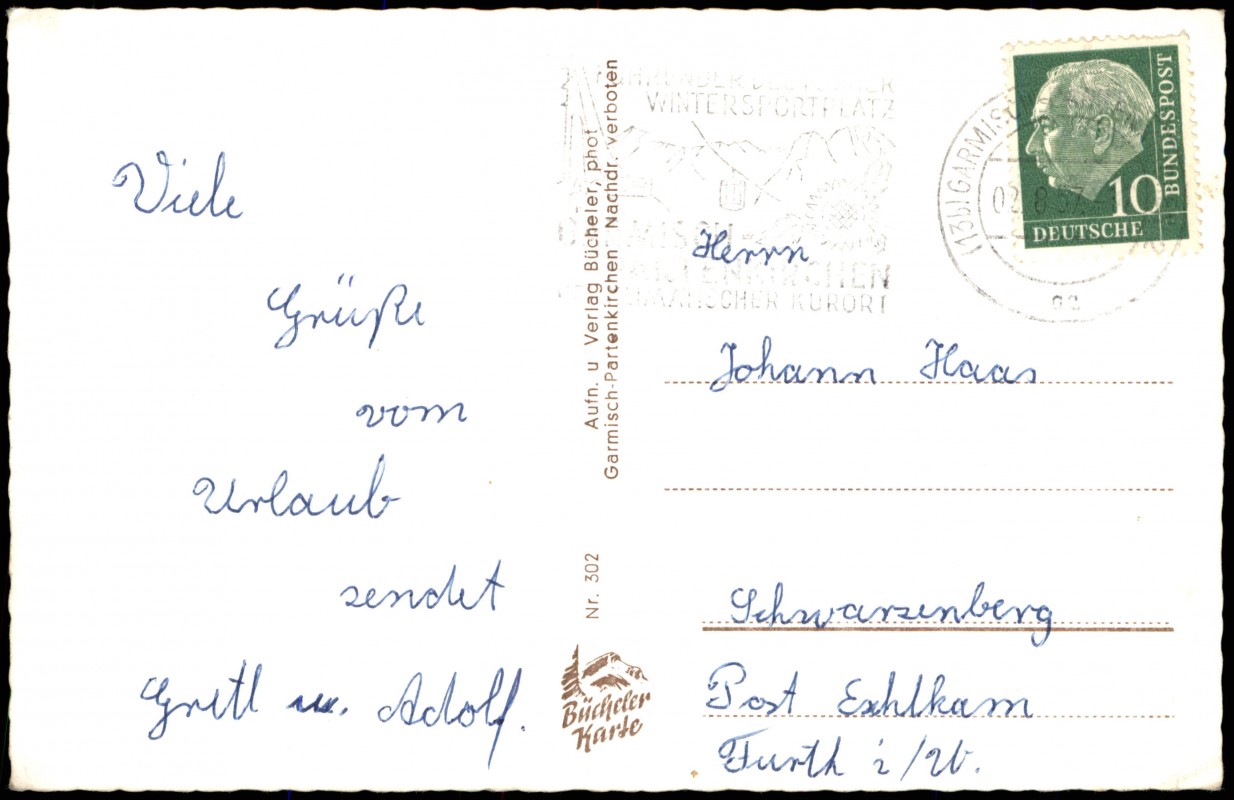 Viele
Grüße
vom
Urlaub
sendet
Gretl u. Adolf.
Aufn. u Verlag Bücheler, phot
Garmisch-Partenkirchen Nachdr. verboten
Nr. 302
Bücheler
Karte
WINTERSPORTPLATZ
KURORT
(13b) GARMISCH
DEUTSCHE
BUNDESPOST
10
Herrn
Johann Haas
Schwarzenberg
Post Eschlkam
Furth i/W.